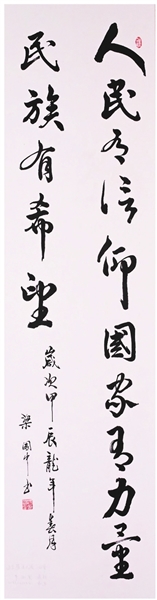 人民有信仰国家有力量
民族有希望
岁次甲辰龍年春月
梁国中书